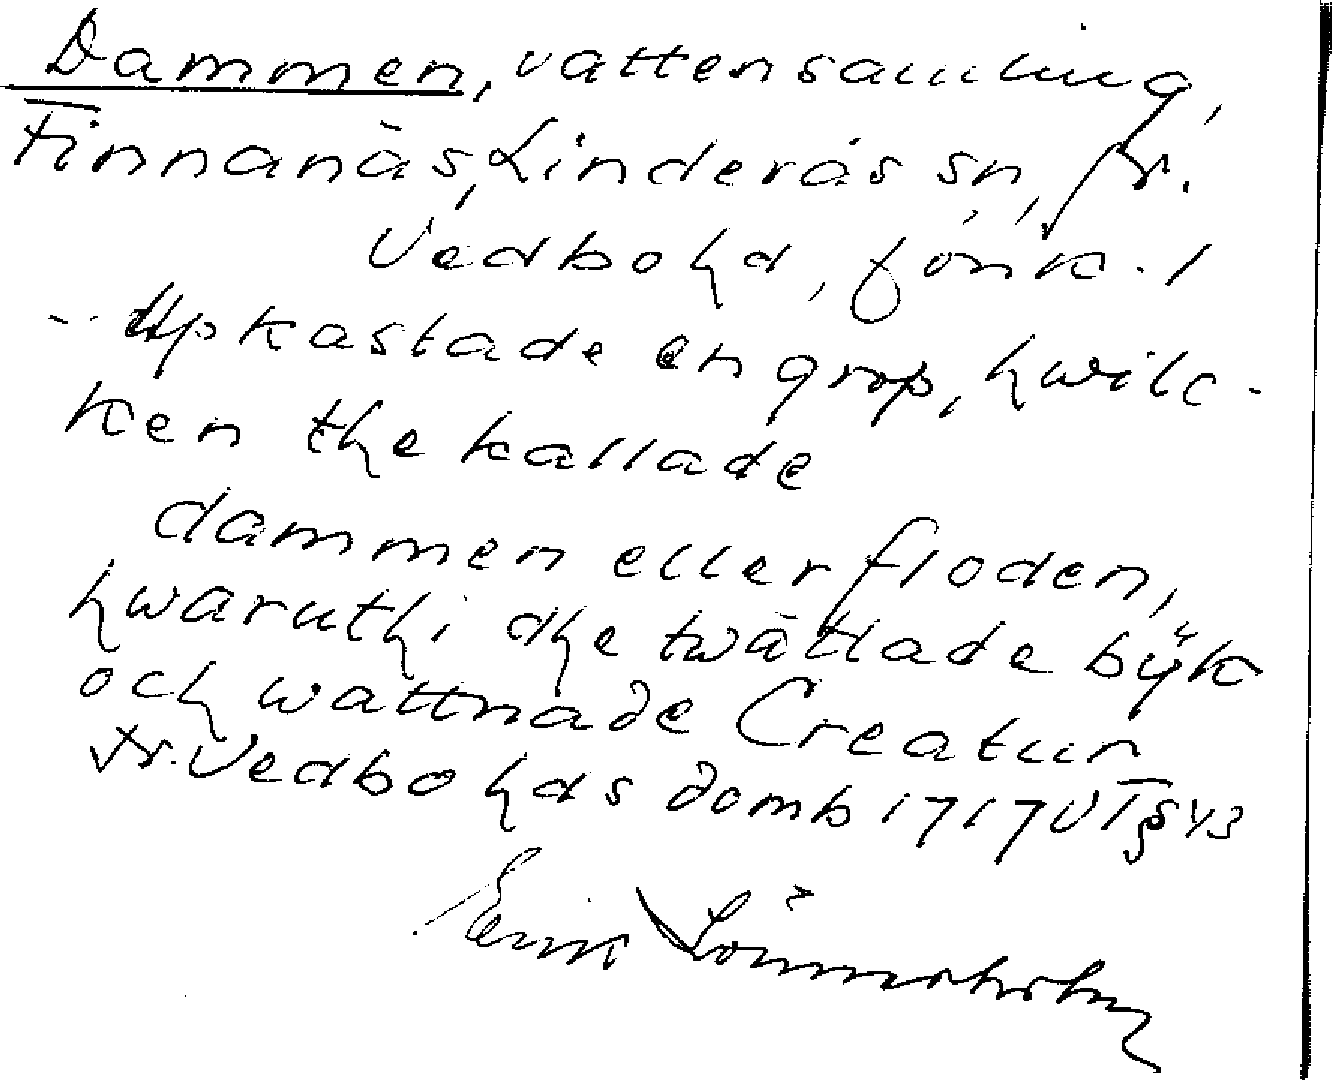 Dammen, vattensamling,
Finnanäs, Linderås sn, N.
Vedbo hd, Jönk. l
-- Upkastade en grop, hwilc-
ken the kallade
dammen eller floden,
hwaruthi dhe twättade bÿk
och wattnade Creatur
N. Vedbo hds domb 1717 VT § 43